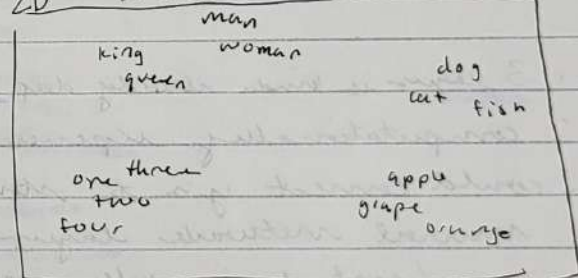 2D
man
king woman
queen
dog
cat fish
one three
two
four
apple
grape
orange